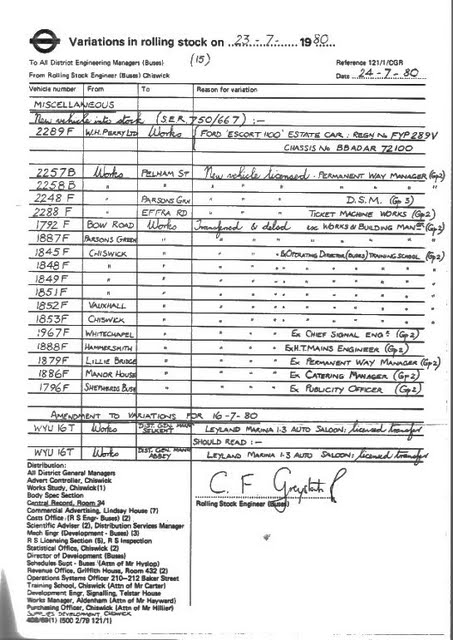 Variations in rolling stock on 23-7- 1980
(15)
To All District Engineering Managers (Buses) Reference 121/1/CGR
From Rolling Stock Engineer (Buses) Chiswick Date 24-7-80
Vehicle number From To Reason for variation
MISCELLANEOUS
New vehicle into stock (SER 750/667) :-
2289F W.H. PERRY LTD Works FORD 'ESCORT 1100' ESTATE CAR; REGN No FYP 289V
CHASSIS No BBADAR 72100
2257B Works PELHAM ST New vehicle licensed. PERMANENT WAY MANAGER (Gp2)
2258B " " " " " " "
2248 F " PARSONS GRN " " " D.S.M. (Gp 3)
2288 F " EFFRA RD " " " TICKET MACHINE WORKS (Gp2)
1792 F BOW ROAD Works Transferred & delcd ex WORKS & BUILDING MANR (Gp2)
1887F PARSONS GREEN " " " " " " "
1845F CHISWICK " " " " Ex OPERATING DIRECTOR (BUSES) TRAINING SCHOOL (Gp2)
1848F " " " " " " " "
1849F " " " " " " " "
1851F " " " " " " " "
1852F VAUXHALL " " " " " " "
1853F CHISWICK " " " " " " "
1967F WHITECHAPEL " " " " Ex CHIEF SIGNAL ENGR (Gp2)
1888F HAMMERSMITH " " " " Ex H.T. MAINS ENGINEER (Gp2)
1879F LILLIE BRIDGE " " " " Ex PERMANENT WAY MANAGER (Gp2)
1886F MANOR HOUSE " " " " Ex CATERING MANAGER (Gp2)
1796F SHEPHERDS BUSH " " " " Ex PUBLICITY OFFICER (Gp2)
AMENDMENT TO VARIATIONS FOR 16-7-80
WYU 16T Works DIST. GEN. MANR SELKENT LEYLAND MARINA 1·3 AUTO SALOON; licensed transfer
SHOULD READ :-
WYU 16T Works DIST. GEN. MANR ABBEY LEYLAND MARINA 1·3 AUTO SALOON; licensed transfer
Distribution:
All District General Managers
Advert Controller, Chiswick
Works Study, Chiswick (1)
Body Spec Section
Central Record, Room 34
Commercial Advertising, Lindsay House (7)
Costs Office (R S Engr- Buses) (2)
Scientific Adviser (2), Distribution Services Manager
Mech Engr (Development - Buses) (3)
R S Licensing Section (5), R S Inspection
Statistical Office, Chiswick (2)
Director of Development (Buses)
Schedules Supt - Buses (Attn of Mr Hyslop)
Revenue Office, Griffith House, Room 432 (2)
Operations Systems Officer 210-212 Baker Street
Training School, Chiswick (Attn of Mr Carter)
Development Engr, Signalling, Telstar House
Works Manager, Aldenham (Attn of Mr Hayward)
Purchasing Officer, Chiswick (Attn of Mr Hillier)
SUPPLIES DEVELOPMENT, CHISWICK
1500 2/79 121/1)
C. F.
Rolling Stock Engineer (Buses)